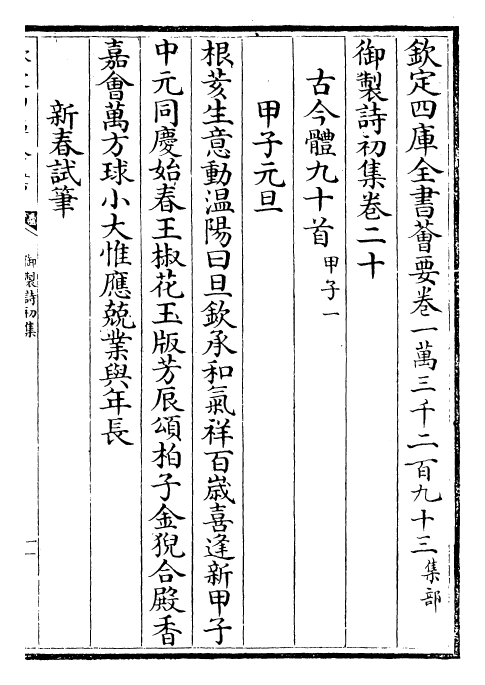 欽定四庫全書薈要卷一萬三千二百九十三集部
御製詩初集卷二十
古今體九十首甲子一
甲子元旦
根荄生意動溫陽曰旦欽承和氣祥百歲喜逢新甲子
中元同慶始春王椒花玉版芳辰頌柏子金猊合殿香
嘉會萬方球小大惟應兢業與年長
新春試筆
御製詩初集